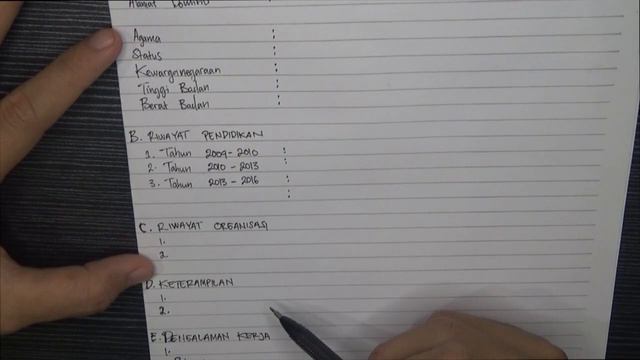 Alamat
Agama :
Status :
Kewarganegaraan :
Tinggi Badan :
Berat Badan :
B. RIWAYAT PENDIDIKAN
1. Tahun 2009 - 2010 :
2. Tahun 2010 - 2013 :
3. Tahun 2013 - 2016 :
:
C. RIWAYAT ORGANISASI
1.
2.
D. KETERAMPILAN
1.
2.
E. PENGALAMAN KERJA
1.